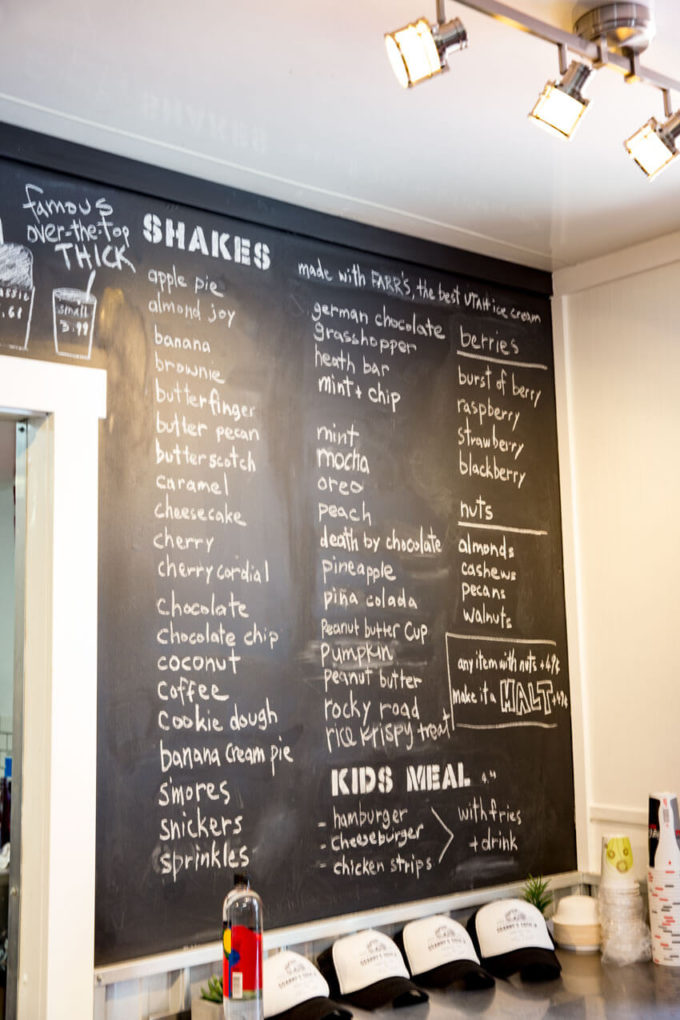 famous
over-the-top
THICK
small
3.99
SHAKES
apple pie
almond joy
banana
brownie
butterfinger
butter pecan
butterscotch
caramel
cheesecake
cherry
cherry cordial
chocolate
chocolate chip
coconut
coffee
cookie dough
banana cream pie
s'mores
snickers
sprinkles
made with FARR'S, the best UTAH ice cream
german chocolate
grasshopper
heath bar
mint + chip
mint
mocha
oreo
peach
death by chocolate
pineapple
piña colada
Peanut butter cup
pumpkin
peanut butter
rocky road
rice krispy treat
berries
burst of berry
raspberry
strawberry
blackberry
nuts
almonds
cashews
pecans
walnuts
any item with nuts + 49¢
make it a MALT + 49¢
KIDS MEAL
- hamburger
- cheeseburger
- chicken strips
with fries
+ drink